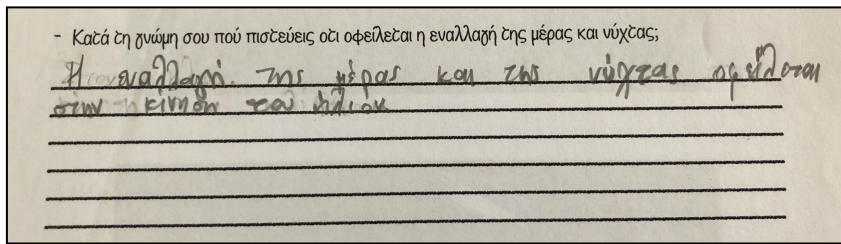 - Κατά τη γνώμη σου πού πιστεύεις οτι οφείλεται η εναλλαγή της μέρας και νύχτας;
Η εναλλαγή της μέρας και της νύχτας οφείλεται
στην κίνηση του ήλιου